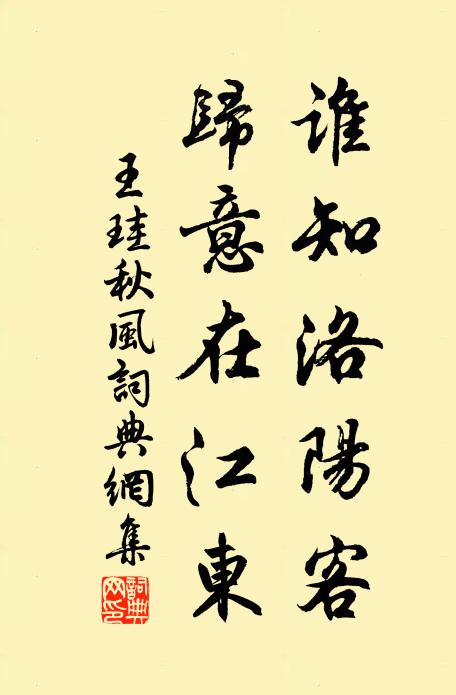 誰知洛陽客
歸意在江東
王珪秋風詞典網集
詞典網印